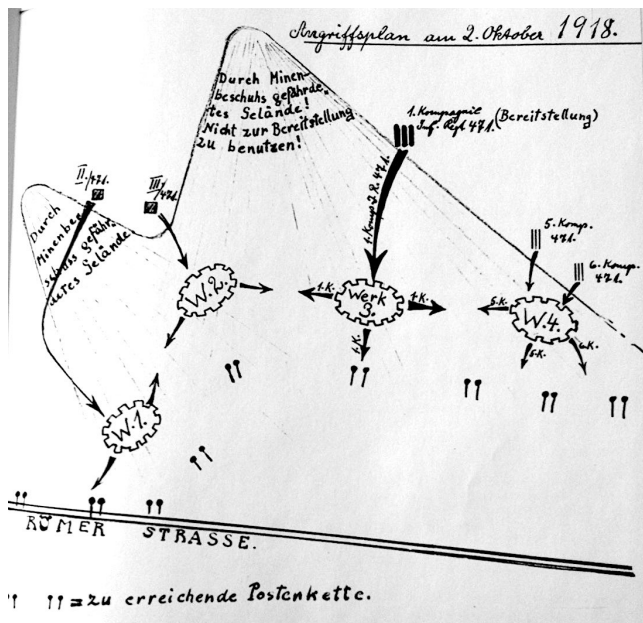 Angriffsplan am 2. Oktober 1918.
Durch Minen-
beschuhs gefährde-
tes Gelände!
Nicht zur Bereitstellung
zu benutzen!
1. Kompagnie
Inf. Regt 471. (Bereitstellung)
II./471.
III./471.
Durch
Minenbe-
schuss gefähr-
detes Gelände
1. Komp. J.R. 471.
5. Komp.
471.
6. Komp.
471.
W.2.
1.K.
Werk
3.
1.K.
1.K.
5.K.
W.4.
5.K.
6.K.
W.1.
RÖMER STRASSE.
= zu erreichende Postenkette.